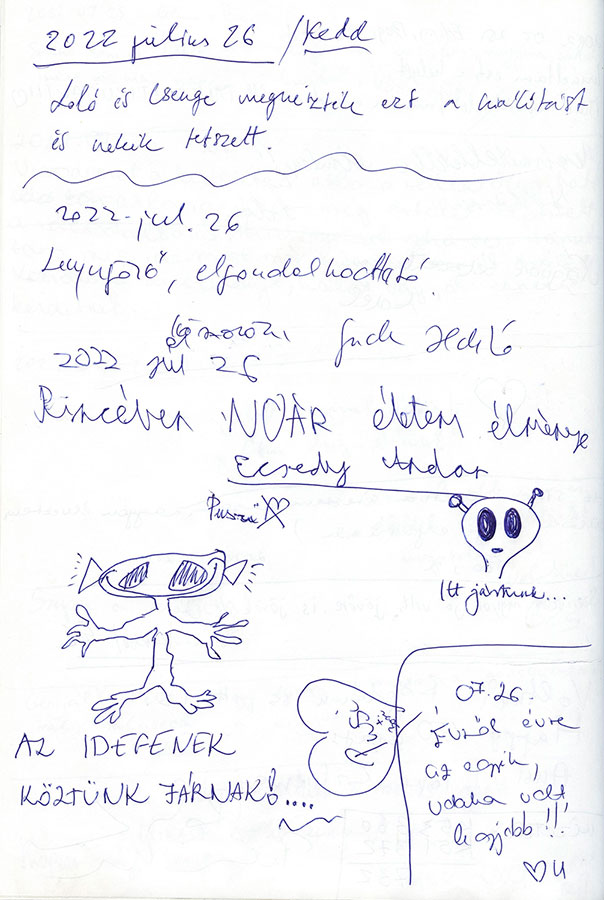 2022 július 26 / Kedd
Loló és Csenge megnézték ezt a kiállítást
és nekik tetszett.
2022-jul. 26
Lenyűgöző, elgondolkodtató.
2022 júl 26
NOÁR életem élménye
Ecsedy Andor
Puszii
Itt jártunk...
AZ IDEGENEK
KÖZTÜNK JÁRNAK!....
07.26.
Évről évre
az egyik,
vdaha volt
legjobb!!!
♡U